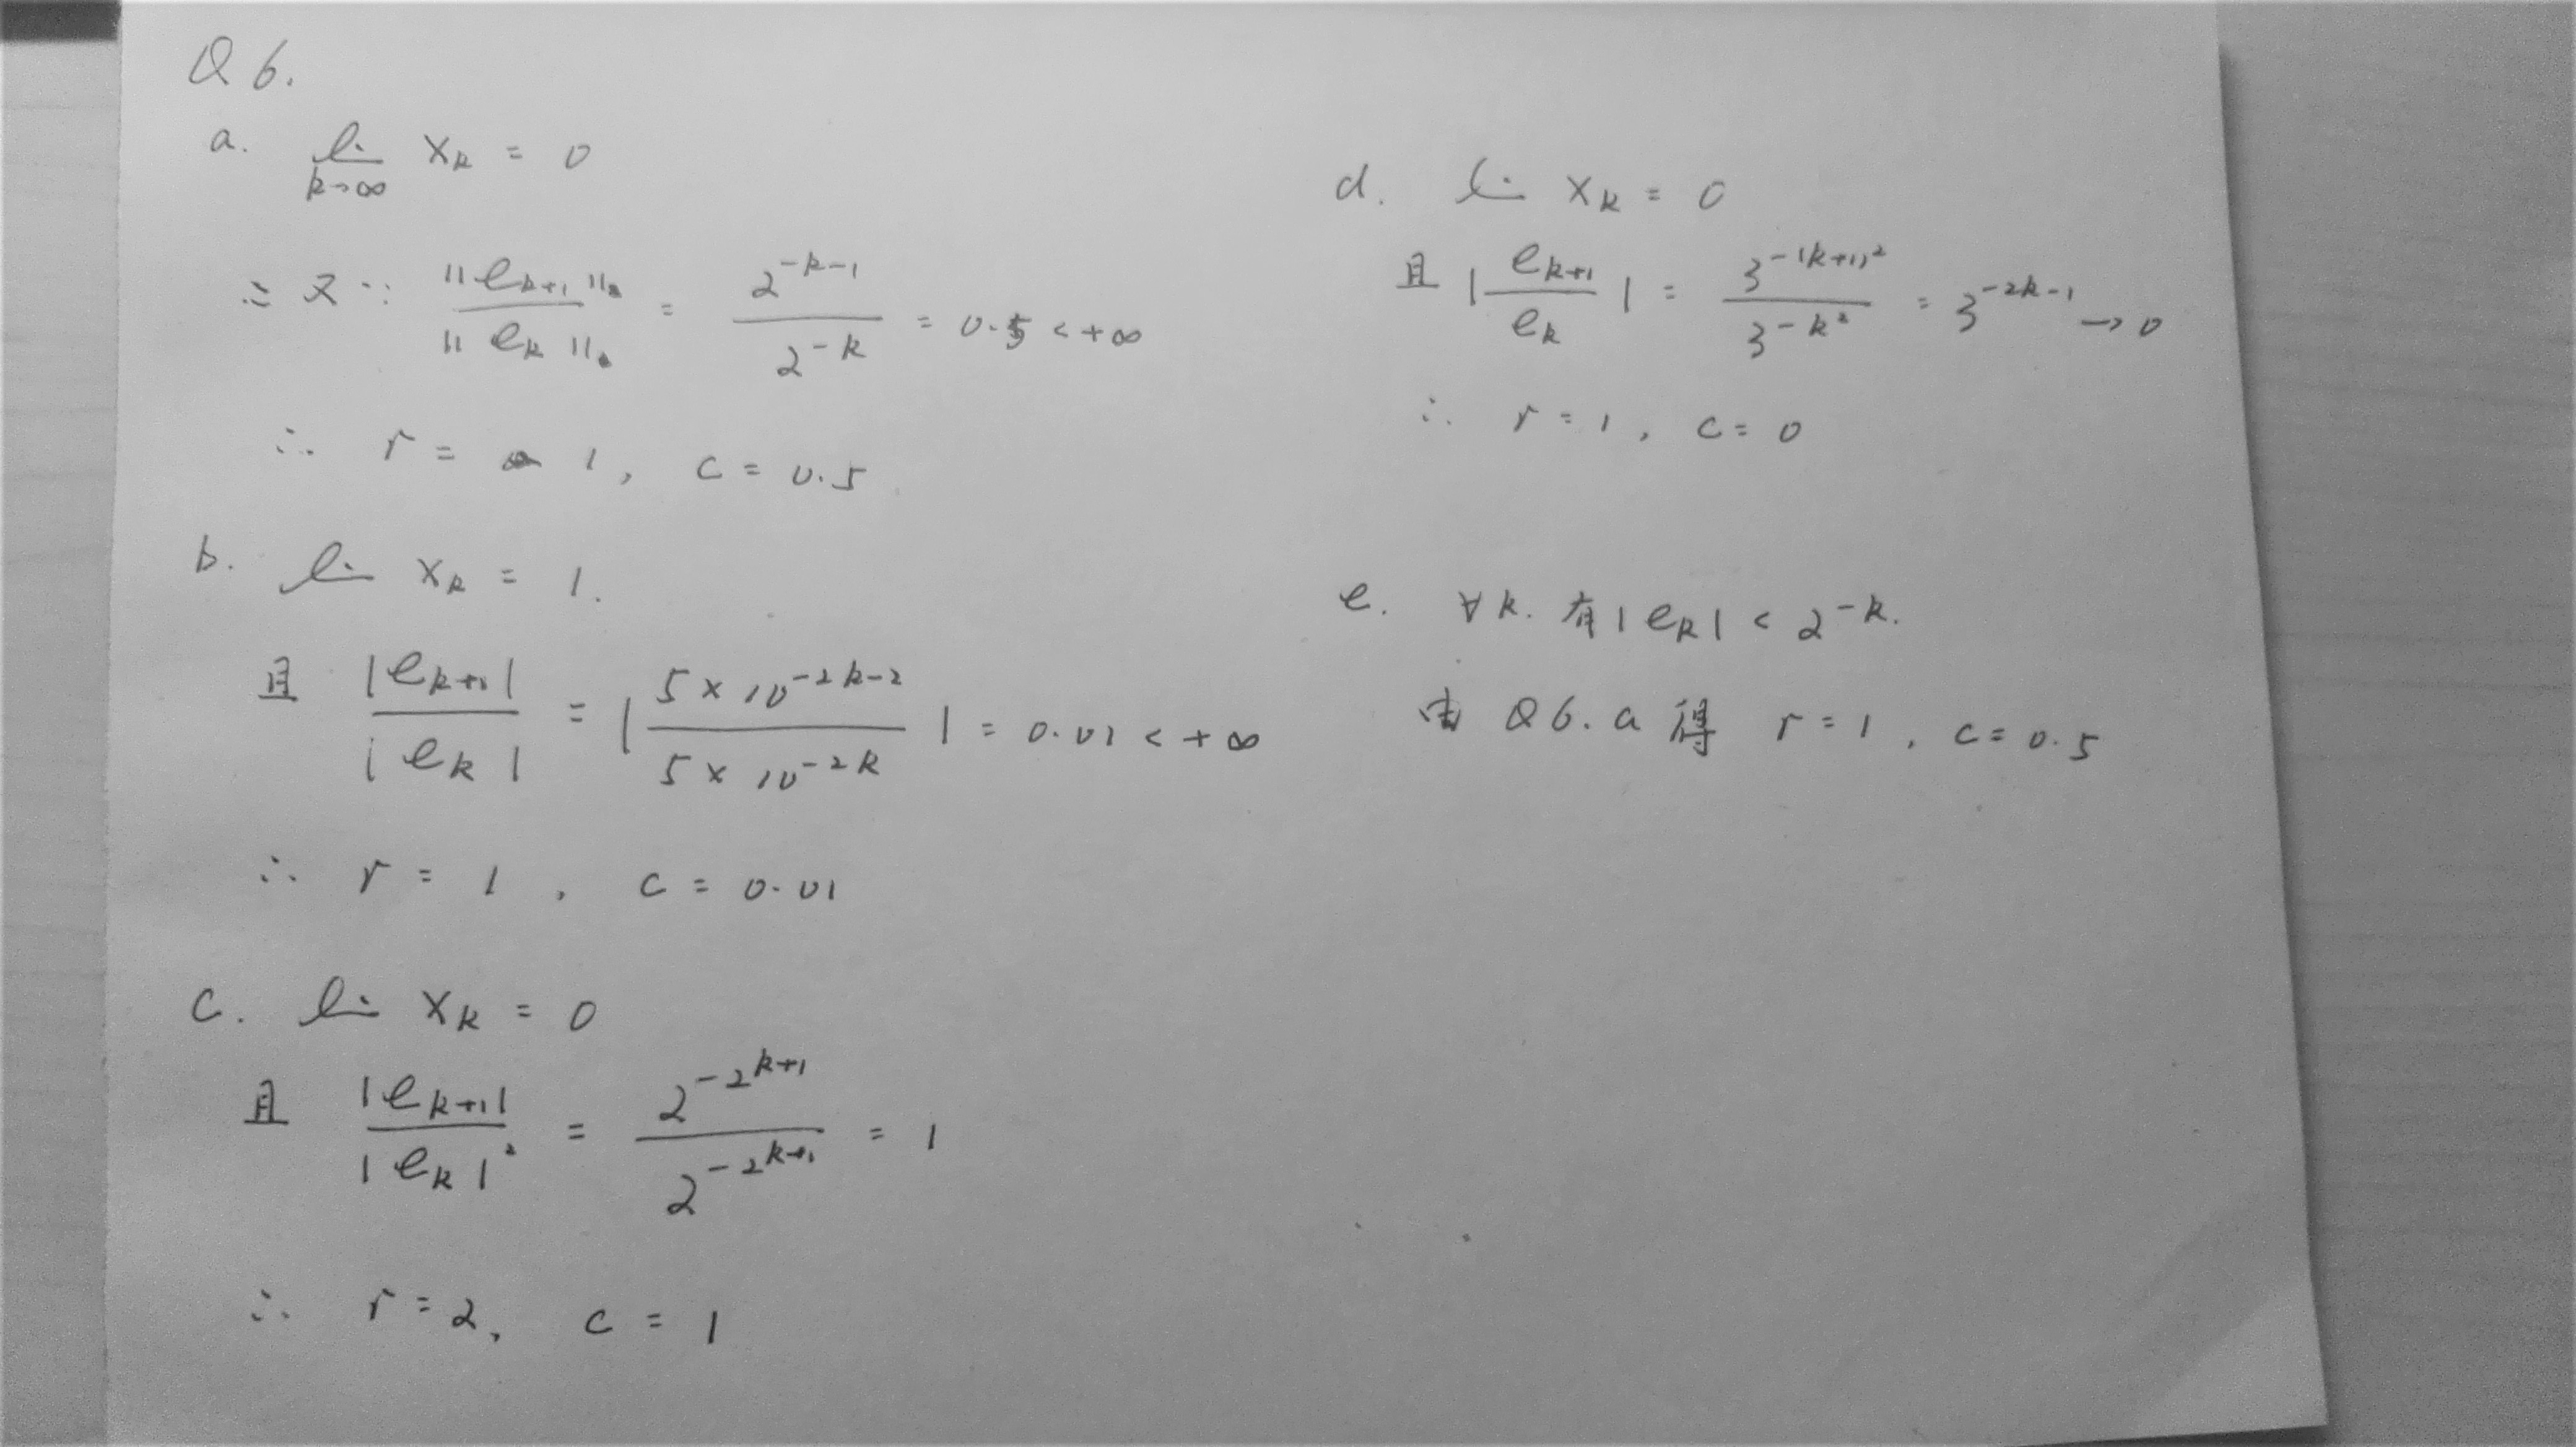 Q6.
a. lim_{k→∞} x_k = 0
∴ 又∵ ‖e_{k+1}‖ / ‖e_k‖ = 2^{-k-1} / 2^{-k} = 0.5 < +∞
∴ r = 1, c = 0.5
b. lim x_k = 1.
且 |e_{k+1}| / |e_k| = |5×10^{-2k-2} / 5×10^{-2k}| = 0.01 < +∞
∴ r = 1, c = 0.01
c. lim x_k = 0
且 |e_{k+1}| / |e_k|^2 = 2^{-2^{k+1}} / 2^{-2^{k+1}} = 1
∴ r = 2, c = 1
d. lim x_k = 0
且 |e_{k+1} / e_k| = 3^{-(k+1)^2} / 3^{-k^2} = 3^{-2k-1} → 0
∴ r = 1, c = 0
e. ∀k. 有 |e_k| < 2^{-k}.
由 Q6.a 得 r = 1, c = 0.5